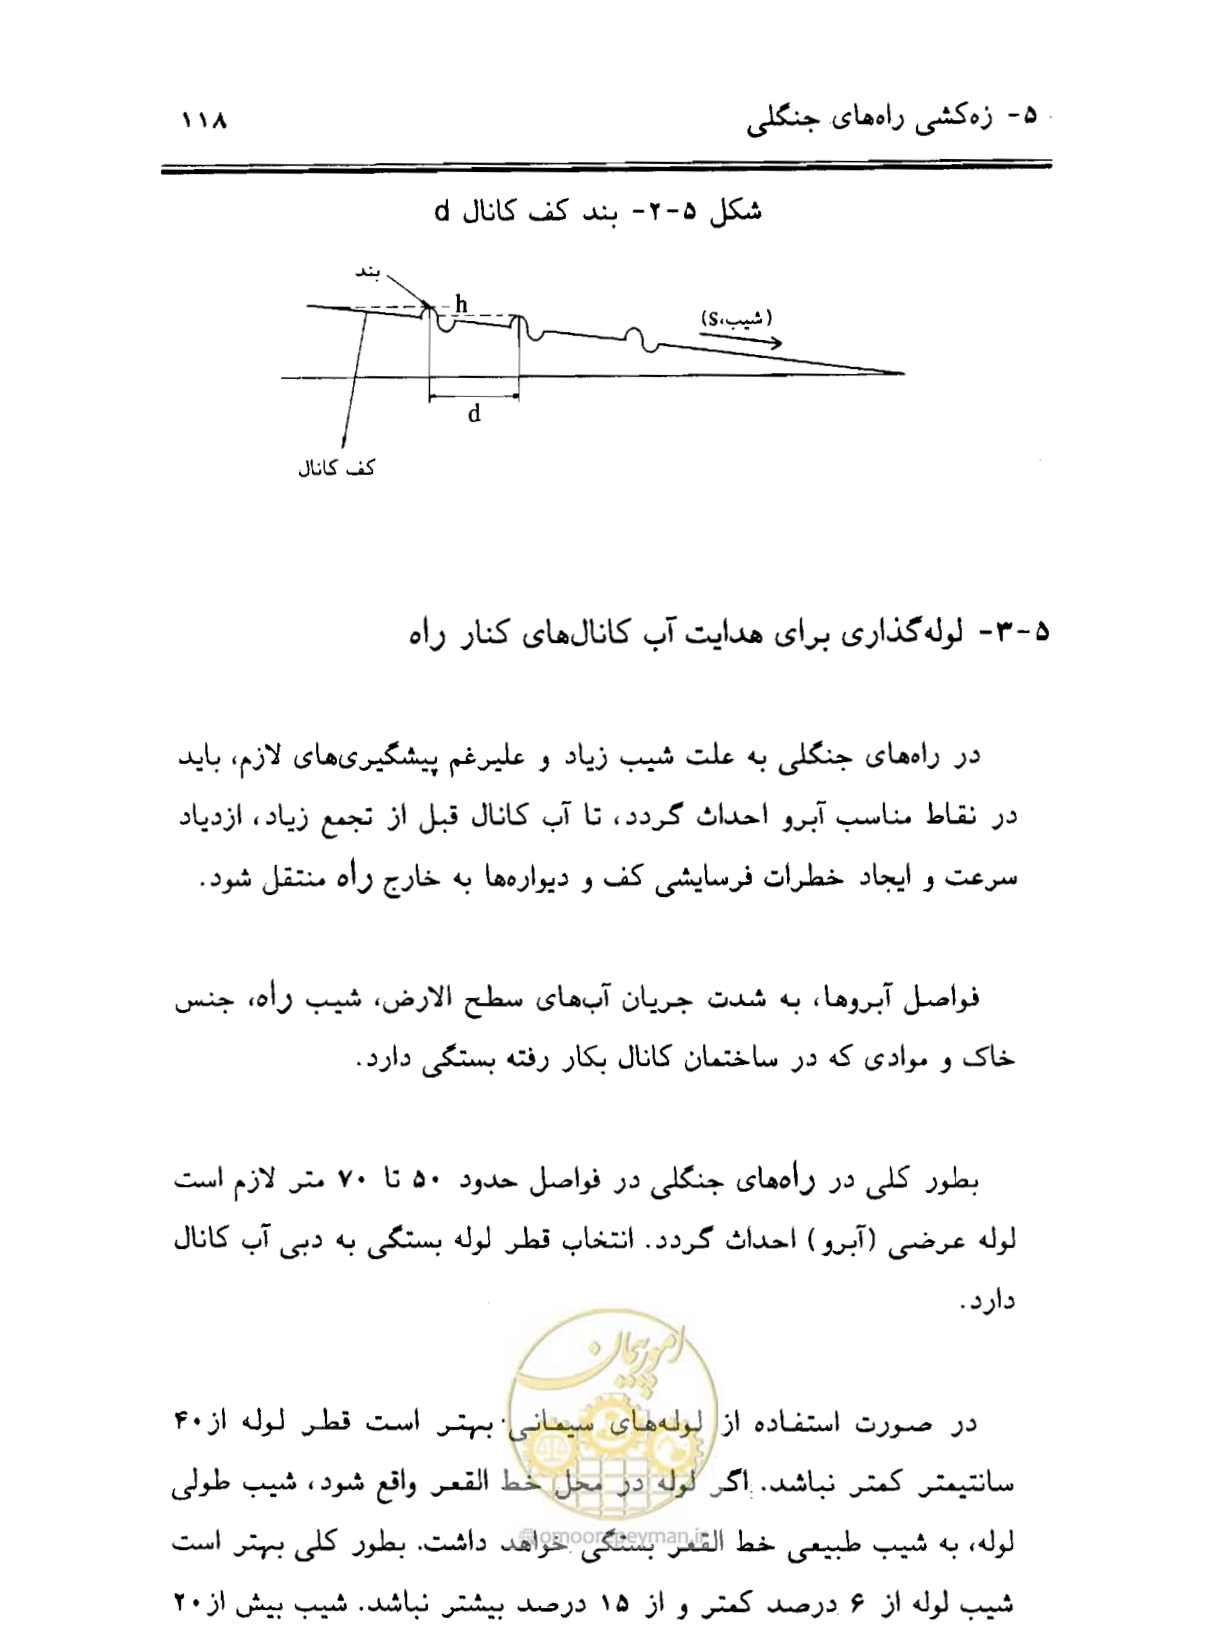 ۵- زه‌کشی راه‌های جنگلی
۱۱۸
شکل ۵-۲- بند کف کانال d
بند
h
(شیب،s)
d
کف کانال
۵-۳- لوله‌گذاری برای هدایت آب کانال‌های کنار راه
در راه‌های جنگلی به علت شیب زیاد و علیرغم پیشگیری‌های لازم، باید
در نقاط مناسب آبرو احداث گردد، تا آب کانال قبل از تجمع زیاد، ازدیاد
سرعت و ایجاد خطرات فرسایشی کف و دیواره‌ها به خارج راه منتقل شود.
فواصل آبروها، به شدت جریان آب‌های سطح الارض، شیب راه، جنس
خاک و موادی که در ساختمان کانال بکار رفته بستگی دارد.
بطور کلی در راه‌های جنگلی در فواصل حدود ۵۰ تا ۷۰ متر لازم است
لوله عرضی (آبرو) احداث گردد. انتخاب قطر لوله بستگی به دبی آب کانال
دارد.
امور پیمان
در صورت استفاده از لوله‌های سیمانی بهتر است قطر لوله از ۴۰
سانتیمتر کمتر نباشد. اگر لوله در محل خط القعر واقع شود، شیب طولی
omoorepeyman.ir
لوله، به شیب طبیعی خط القعر بستگی خواهد داشت. بطور کلی بهتر است
شیب لوله از ۶ درصد کمتر و از ۱۵ درصد بیشتر نباشد. شیب بیش از ۲۰